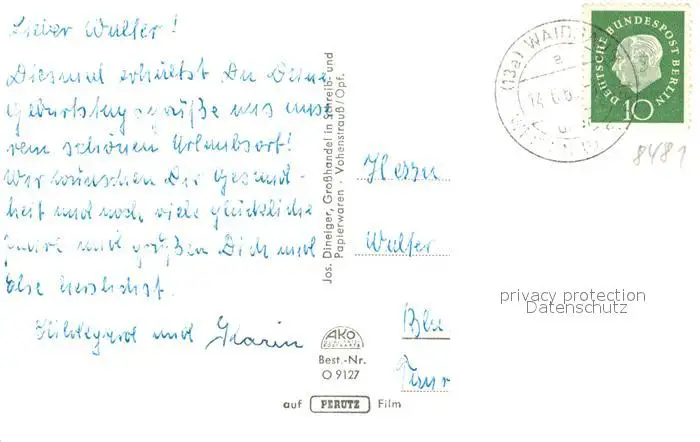 Lieber Walter!
Diesmal erhältst Du Deine
Geburtstagsgrüße aus unse-
rem schönen Urlaubsort!
Wir wünschen Dir Gesund-
heit und noch viele glückliche
Jahre und grüßen Dich und
Else herzlichst.
Hildegard und Karin
Jos. Dineiger, Großhandel in Schreib- und
Papierwaren · Vohenstrauß/Opf.
AKO
Best.-Nr.
O 9127
auf PERUTZ Film
(13a) WAID
14.6.
DEUTSCHE BUNDESPOST BERLIN
10
8481
Herrn
Walter
privacy protection
Datenschutz